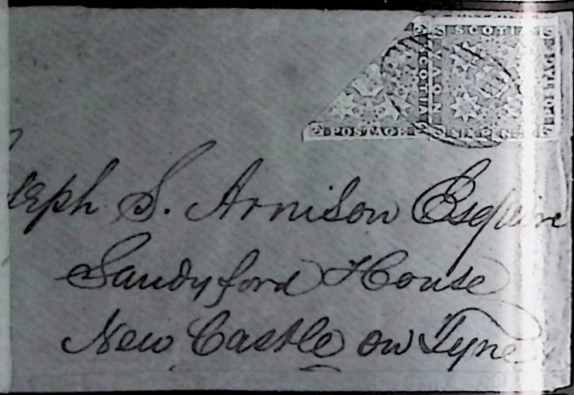 SCOTIA
SCOTIA
NOVA
POSTAGE
eph S. Arnison Esquire
Sandyford House
New Castle on Tyne